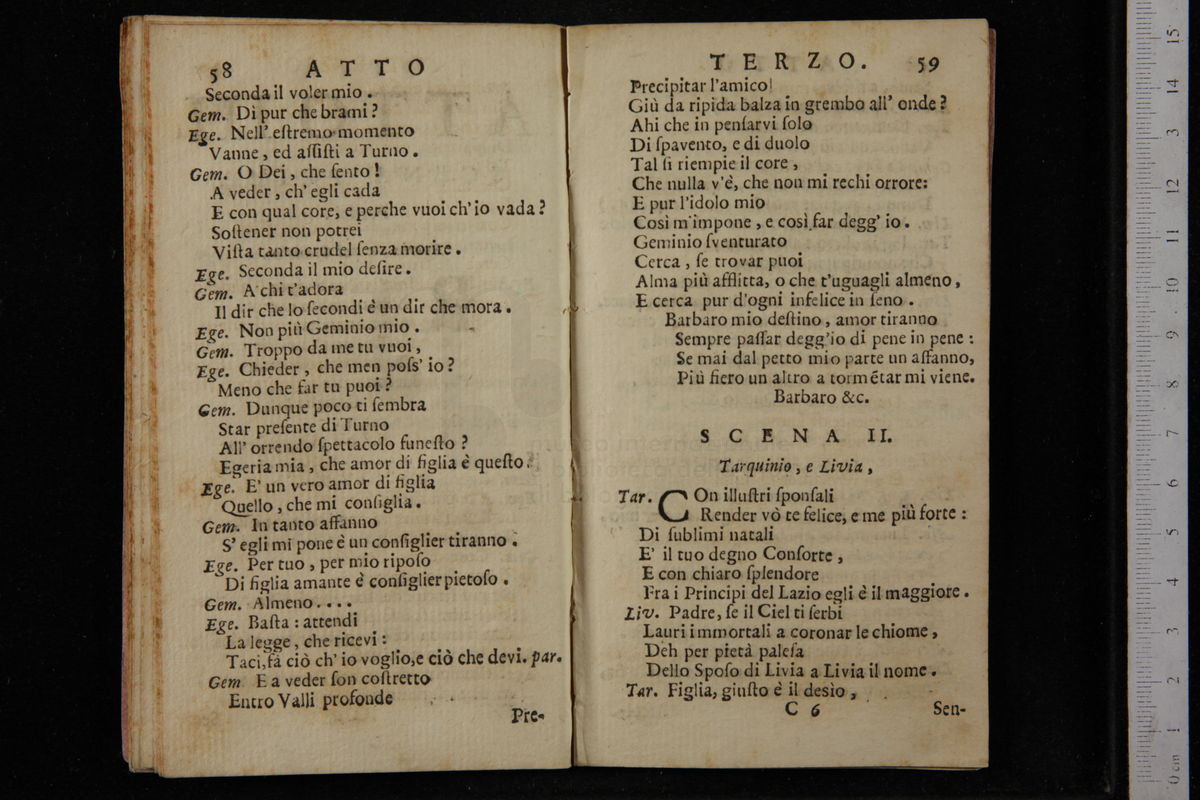 58 ATTO
Seconda il voler mio.
Gem. Di pur che brami?
Ege. Nell' eſtremo momento
Vanne, ed aſſiſti a Turno.
Gem. O Dei, che ſento!
A veder, ch' egli cada
E con qual core, e perche vuoi ch' io vada?
Soſtener non potrei
Viſta tanto crudel ſenza morire.
Ege. Seconda il mio deſire.
Gem. A chi t'adora
Il dir che lo ſecondi è un dir che mora.
Ege. Non più Geminio mio.
Gem. Troppo da me tu vuoi,
Ege. Chieder, che men poſs' io?
Meno che far tu puoi?
Gem. Dunque poco ti ſembra
Star preſente di Turno
All' orrendo ſpettacolo funeſto?
Egeria mia, che amor di figlia è queſto?
Ege. E' un vero amor di figlia
Quello, che mi conſiglia.
Gem. In tanto affanno
S' egli mi pone è un conſiglier tiranno.
Ege. Per tuo, per mio ripoſo
Di figlia amante è conſiglier pietoſo.
Gem. Almeno....
Ege. Baſta: attendi
La legge, che ricevi:
Taci, fà ciò ch' io voglio, e ciò che devi. par.
Gem. E a veder ſon coſtretto
Entro Valli profonde
Pre-
TERZO. 59
Precipitar l'amico!
Giù da ripida balza in grembo all' onde?
Ahi che in penſarvi ſolo
Di ſpavento, e di duolo
Tal ſi riempie il core,
Che nulla v'è, che non mi rechi orrore:
E pur l'idolo mio
Così m'impone, e così far degg' io.
Geminio ſventurato
Cerca, ſe trovar puoi
Alma più afflitta, o che t'uguagli almeno,
E cerca pur d'ogni infelice in ſeno.
Barbaro mio deſtino, amor tiranno
Sempre paſſar degg'io di pene in pene:
Se mai dal petto mio parte un affanno,
Più fiero un altro a tormētar mi viene.
Barbaro &c.
SCENA II.
Tarquinio, e Livia,
Tar. COn illuſtri ſponſali
Render vò te felice, e me più forte:
Di ſublimi natali
E' il tuo degno Conſorte,
E con chiaro ſplendore
Fra i Principi del Lazio egli è il maggiore.
Liv. Padre, ſe il Ciel ti ſerbi
Lauri immortali a coronar le chiome,
Deh per pietà paleſa
Dello Spoſo di Livia a Livia il nome.
Tar. Figlia, giuſto è il desìo,
C 6 Sen-